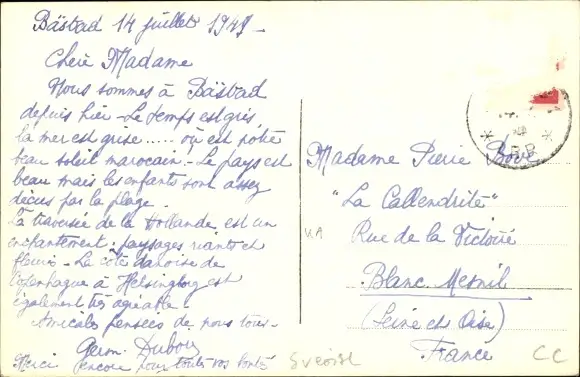 Båstad 14 juillet 1949 -
Chère Madame
Nous sommes à Båstad
depuis hier - Le temps est gris,
la mer est grise ..... où est notre
beau soleil marocain - Le pays est
beau mais les enfants sont assez
déçus par la plage -
La traversée de la Hollande est un
enchantement : paysages riants et
fleuris - La côte danoise de
Copenhague à Helsingborg est
également très agréable -
Amicales pensées de nous tous -
Germ. Dubois
Merci encore pour toutes vos bontés
Madame Pierre Bove
"La Callendrite"
Rue de la Victoire
Blanc-Mesnil
(Seine et Oise)
France
CC